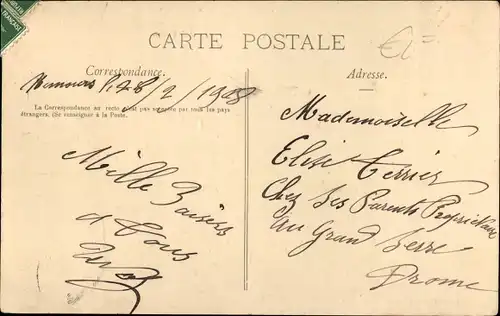 CARTE POSTALE
Correspondance.
Adresse.
La Correspondance au recto n'est pas acceptée par tous les pays
étrangers. (Se renseigner à la Poste.)
8/2/1908
Mille Baisers
à tous
Mademoiselle
Elise Terrier
Chez Ses Parents Propriétaire
Au Grand Serre
Drome